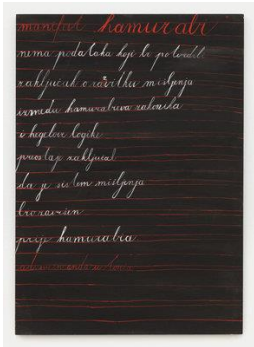 manifest hamurabi
nema podataka koji bi potvrdili
zaključak o razvitku mišljenja
između hamurabieva zakonika
i hegelove logike
preostaje zaključak
da je sistem mišljenja
bio završen
prije hamurabia